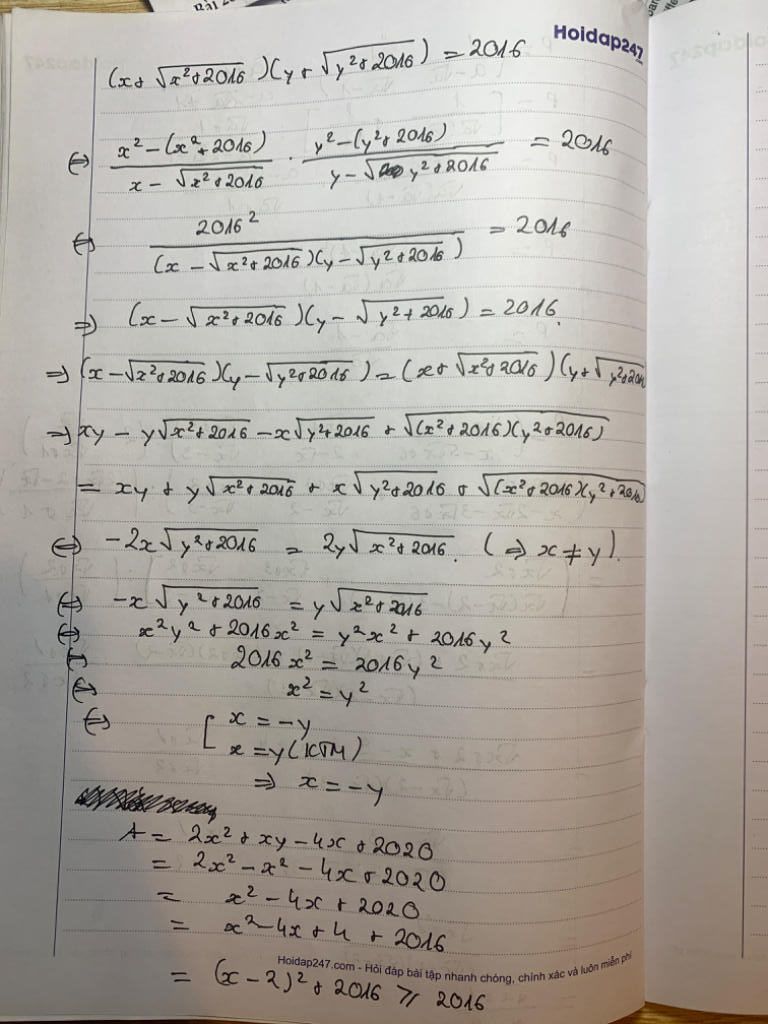 Hoidap247
(x + √(x² + 2016))(y + √(y² + 2016)) = 2016
⇔ (x² - (x² + 2016))/(x - √(x² + 2016)) · (y² - (y² + 2016))/(y - √(y² + 2016)) = 2016
⇔ 2016²/((x - √(x² + 2016))(y - √(y² + 2016))) = 2016
⇒ (x - √(x² + 2016))(y - √(y² + 2016)) = 2016.
⇒ (x - √(x² + 2016))(y - √(y² + 2016)) = (x + √(x² + 2016))(y + √(y² + 201
⇒ xy - y√(x² + 2016) - x√(y² + 2016) + √((x² + 2016)(y² + 2016))
= xy + y√(x² + 2016) + x√(y² + 2016) + √((x² + 2016)(y² + 2016)
⇔ -2x√(y² + 2016) = 2y√(x² + 2016). (⇒ x ≠ y).
⇔ -x√(y² + 2016) = y√(x² + 2016)
⇔ x²y² + 2016x² = y²x² + 2016y²
⇔ 2016x² = 2016y²
⇔ x² = y²
⇔ [ x = -y
x = y (KTM)
⇒ x = -y
A = 2x² + xy - 4x + 2020
= 2x² - x² - 4x + 2020
= x² - 4x + 2020
= x² - 4x + 4 + 2016
Hoidap247.com - Hỏi đáp bài tập nhanh chóng, chính xác và luôn miễn phí
= (x - 2)² + 2016 ⩾ 2016